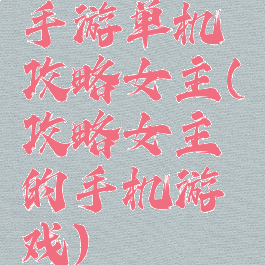 手游单机
攻略女主(
攻略女主
的手机游
戏)